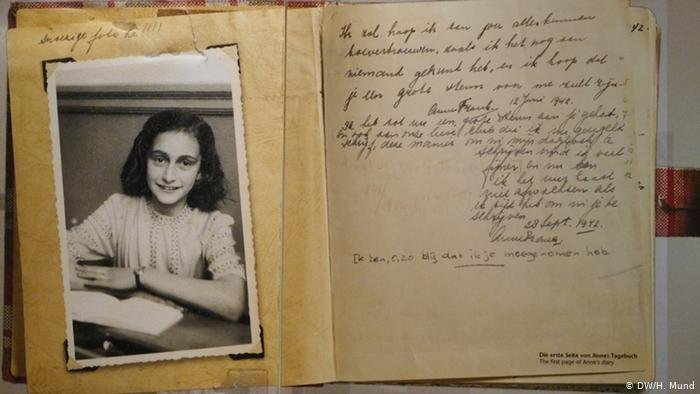 snoezige foto hè !!!!
42.
Ik zal hoop ik aan jou alles kunnen
toevertrouwen, zoals ik het nog aan
niemand gekund heb, en ik hoop dat
je een grote steun voor me zult zijn.
Anne Frank. 12 Juni 1942.
Ik heb tot nu een grote steun aan je gehad,
en ook aan onze lieve club die ik nu geregeld
schrijf, deze manier om in mijn dagboek te
schrijven vind ik veel
fijner en nu kan
ik het uur haast
niet afwachten als
ik tijd heb om in je te
schrijven.
28 Sept. 1942.
Anne Frank.
Ik ben, o, zo blij dat ik je meegenomen heb.
Die erste Seite von Annes Tagebuch
The first page of Anne's diary
© DW/H. Mund